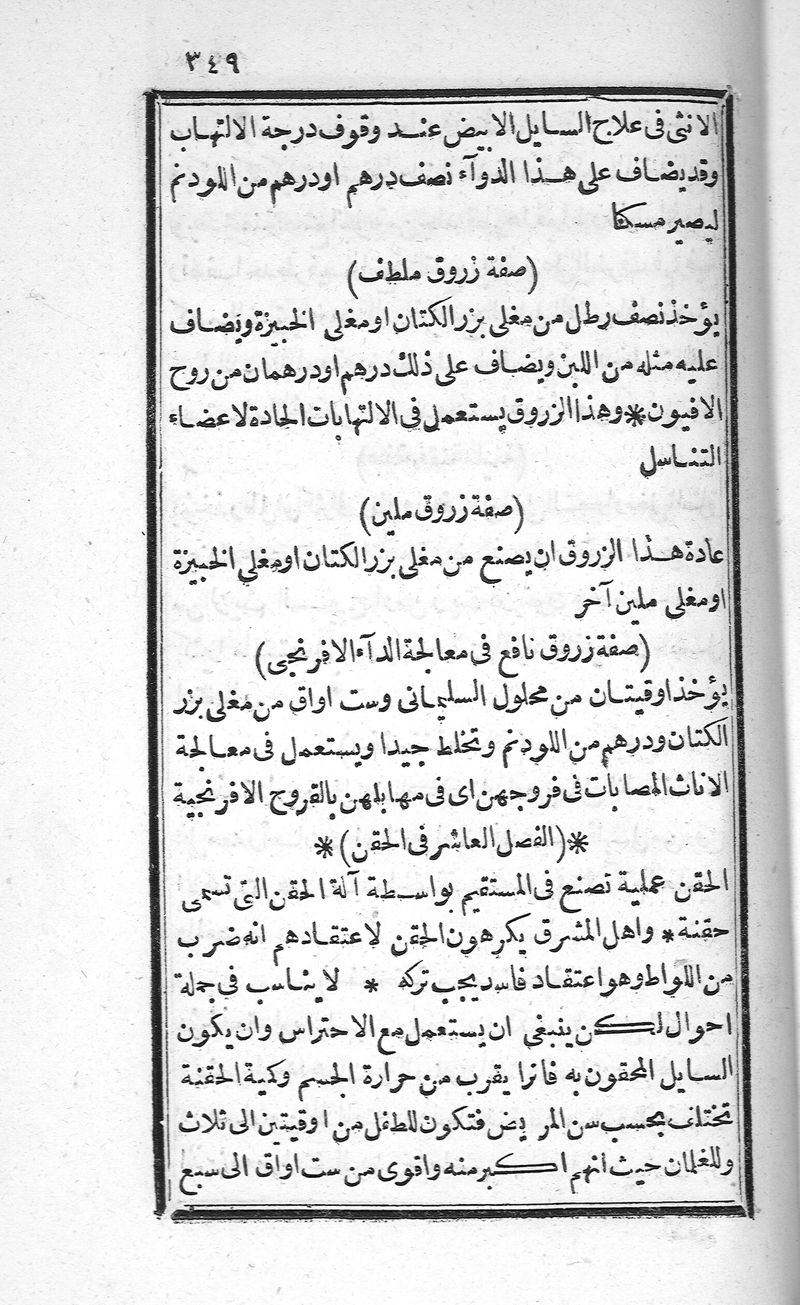 ٣٤٩
الانثى فى علاج السايل الابيض عند وقوف درجة الالتهاب
وقد يضاف على هذا الدوآء نصف درهم او درهم من اللودنم
ليصير مسكنا
(صفة زروق ملطف)
يؤخذ نصف رطل من مغلى بزر الكتان او مغلى الخبيزة ويضاف
عليه مثله من اللبن ويضاف على ذلك درهم او درهمان من روح
الافيون * وهذا الزروق يستعمل فى الالتهابات الحادة لاعضاء
التناسل
(صفة زروق ملين)
عادة هذا الزروق ان يصنع من مغلى بزر الكتان او مغلى الخبيزة
او مغلى ملين آخر
(صفة زروق نافع فى معالجة الدآء الافرنجى)
يؤخذ اوقيتان من محلول السليمانى وست اواق من مغلى بزر
الكتان ودرهم من اللودنم وتخلط جيدا ويستعمل فى معالجة
الاناث المصابات فى فروجهن اى فى مهابلهن بالقروح الافرنجية
* (الفصل العاشر فى الحقن) *
الحقن عملية تصنع فى المستقيم بواسطة آلة الحقن التى تسمى
حقنة * واهل المشرق يكرهون الحقن لاعتقادهم انه ضرب
من اللواط وهو اعتقاد فاسد يجب تركه * لا يناسب فى جملة
احوال لكن ينبغى ان يستعمل مع الاحتراس وان يكون
السايل المحقون به فاترا يقرب من حرارة الجسم وكمية الحقنة
تختلف بحسب سن المريض فتكون للطفل من اوقيتين الى ثلاث
وللغلمان حيث انهم اكبر منه واقوى من ست اواق الى سبع